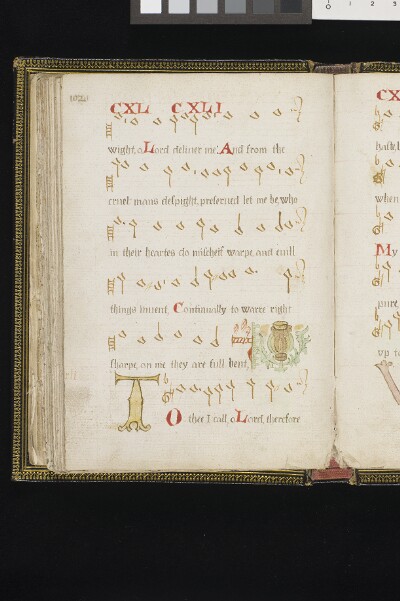 CXL CXLI
wight, o Lord deliuer me: And from the
cruel mans despight, preserued let me be, who
in their heartes do mischeif warpe, and euill
things inuent, Continually to warre right
sharpe, on me they are full bent,
TO thee I call, o Lord, therefore
CX
when
My
pure,
vp to